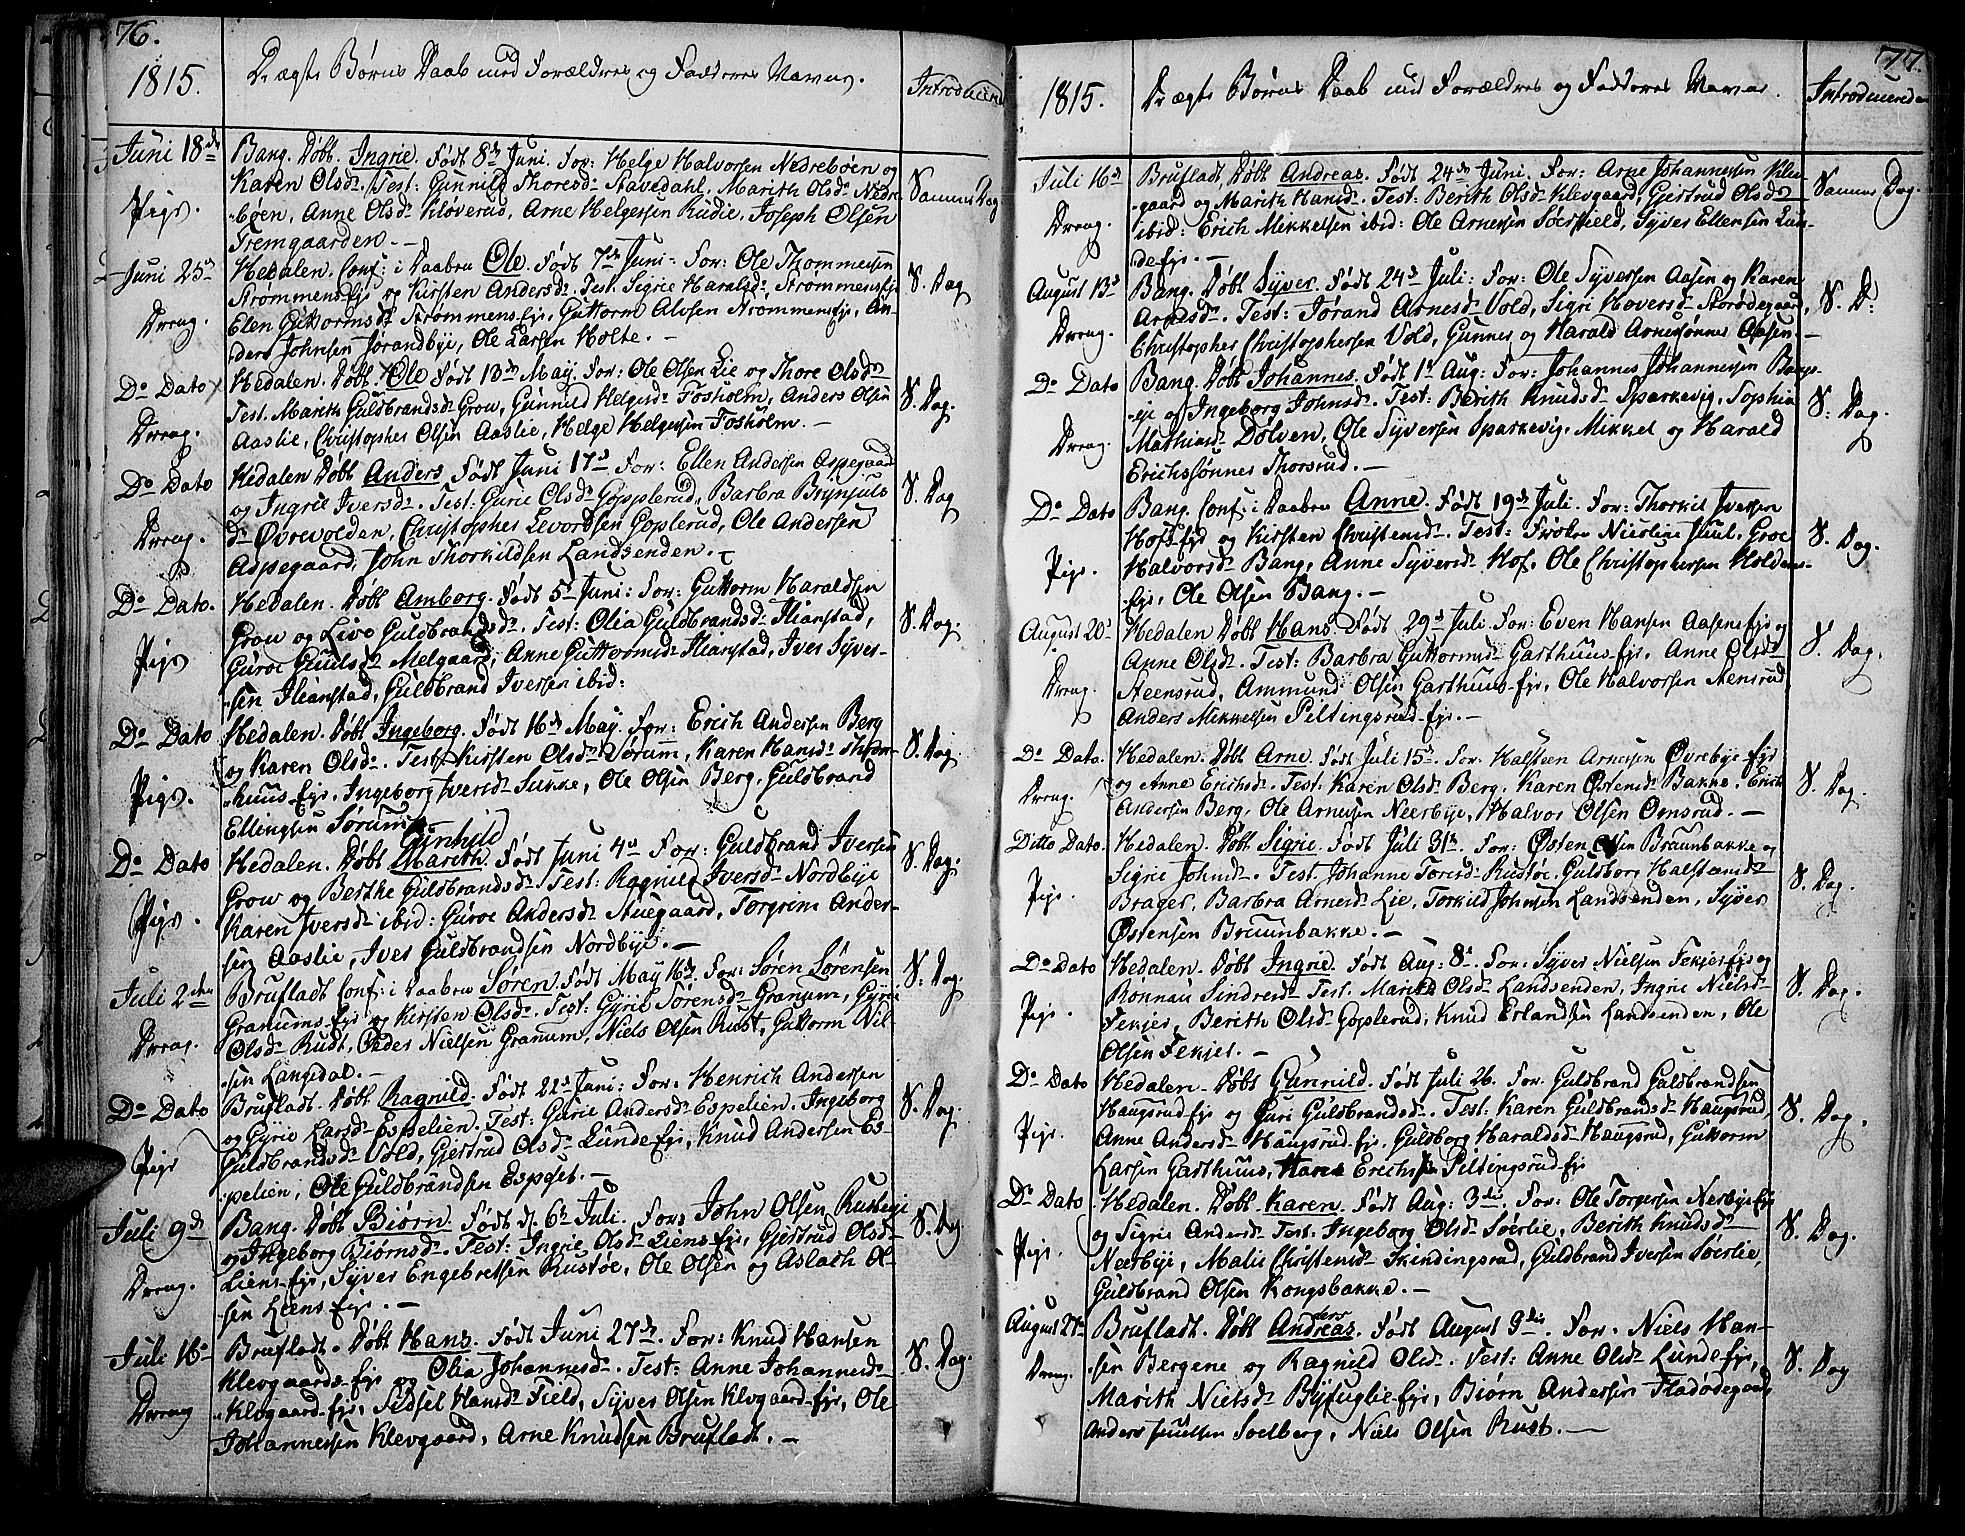 76.
1815.
De ægte Børns Daab med Forældres og Fadderes Navne.
Introducered
Juni 18de
Pige.
Bang. Døbt. Ingrie. Født 8de Juni. For: Helge Halvorsen Nedrebøen og
Karen Olsdr. Test: Gunnild Thoresdr Stavedahl, Marith Olsdr Nedre-
-bøen, Anne Olsdr Kløverud, Arne Helgersen Rudie, Joseph Olsen
Fremgaarden.-
Sammes Dag
Juni 25de
Dreng.
Hedalen. Conf: i Daaben Ole. Født 7de Juni. For: Ole Thommessen
StrømmensEje og Kirsten Andersdr. Test. Sigrie Haraldsdr. StrømmensEje
Elen Guttormsdr StrømmensEje, Guttorm Alvsen StrømmensEje, An-
ders Johnsen Jorandbye, Ole Larsen Holte.-
S. Dag
Do Dato
Dreng.
Hedalen. Døbt. Ole Født 13de May. For: Ole Olsen Lie og Thore Olsdr
Test. Marith Guldbrandsdr Grow, Gunnild Helgesdr Fosholm, Anders Olsen
Aaslie, Christopher Olsen Aaslie, Helge Helgersen Fosholm.-
S. Dag.
Do Dato
Dreng.
Hedalen Døbt Anders Født Juni 17de For: Ellen Andersen Aspegaard
og Ingrie Iversdr. Test: Gurie Olsdr Goplerud, Barbra Brynjuls
dr Øvrevolden, Christopher Levordsen Goplerud, Ole Andersen
Aspegaard, John Thorkildsen Landsenden.-
S. Dag
Do Dato.
Pige
Hedalen. Døbt Amborg. Født 5te Juni: For: Guttorm Haraldsen
Grow og Live Guldbrandsdr. Test: Olia Guldbrandsdr Ilianstad,
Guroe Gulsdr Melgaard, Anne Guttormsdr Ilianstad, Iver Syver-
-sen Ilianstad, Guldbrand Iversen ibid:
S. Dag.
Do Dato
Pige.
Hedalen. Døbt Ingeborg. Født 16de May. For: Erich Andersen Berg
og Karen Olsdr. Test: Kirsten Olsdr Sørum, Karen Hansdr Thom-
-huus-Eje. Ingeborg Iversdr Sukke, Ole Olsen Berg, Guldbrand
Ellingsen Sørum.
S. Dag.
Do Dato
Pige.
Gunhild
Hedalen. Døbt Marith. Født Juni 4de For: Guldbrand Iversen
Grow og Berthe Guldbrandsdr. Test: Ragnild Iversdr Nordbye
Karen Iversdr ibid: Guroe Andersdr Stuegaard, Torgrim Ander-
sen Aaslie, Iver Guldbrandsen Nordbye.-
S. Dag.
Juli 2den
Dreng.
Brufladt Conf: i Daaben Søren. Født May 16de. For: Søren Sørensen
Granums-Eje og Kirsten Olsdr. Test: Gyrie Sørensdr Granum, Gyrie
Olsdr Rudt, Peder Nielsen Granum, Niels Olsen Rust, Guttorm Nil-
-sen Langedal.-
S. Dag.
Do Dato
Pige
Brufladt. Døbt Ragnild. Født 22de Juni: For: Henrich Andersen
og Gyrie Larsdr Espelien. Test: Gurie Andersdr Espelien. Ingeborg
Guldbrandsdr Vold, Gjertrud Olsdr Lunde-Eje, Knud Andersen Es-
-pelien, Ole Guldbrandsen Espeset.-
S. Dag.
Juli 9de
Dreng.
Bang. Døbt Biørn. Født d. 6te Juli. For: John Olsen Rustøeje
og Ingeborg Biørnsdr. Test: Ingrie Olsdr Liens-Eje, Gjertrud Olsdr
Liens-Eje, Syver Engebretsen Rustøe, Ole Olsen og Aslach Ol-
-sen Liens-Eje.-
S. Dag
Juli 16de
Dreng
Brufladt. Døbt Hans. Født Juni 27de. For: Knud Hansen
Klevgaards-Eje og Olia Johannesdr. Test: Anne Johannesdr
-Klevgaard-Eje, Sidsel Hansdr Field, Syver Olsen Klevgaard-Eje, Ole
Johannessen Klevgaard, Arne Knudsen Brufladt.-
S. Dag.
77.
1815.
De ægte Børns Daab med Forældres og Fadderes Navne.
Introducered
Juli 16de
Dreng.
Brufladt. Døbt Andreas. Født 24de Juni. For: Arne Johannessen Klev-
-gaard og Marith Hansdr. Test: Berith Olsdr Klevgaard, Gjertrud Olsdr
ibid: Erich Mikkelsen ibid: Ole Arnesen Sørfield, Syver Ellensen Lun-
de-Eje.-
Sammes Dag.
August 13de
Dreng.
Bang. Døbt Syver. Født 24de Juli: For: Ole Syversen Aasen og Karen
Arnesdr. Test: Jørand Arnesdr Vold, Sigri Hoversdr Storødegaard,
Christopher Christophersen Vold, Gunner og Harald Arnessønner Aasen.-
S. D:
Do Dato
Dreng.
Bang. Døbt Johannes. Født 1te Aug: For: Johannes Johannessen Bangs-
-eje og Ingeborg Johnsdr. Test: Berith Knudsdr Sparkevig, Sophia
Mathiasdr Dølven, Ole Syversen Sparkevig, Mikkel og Harald
Erichssønner Thorsrud.-
S. Dag.
Do Dato
Pige.
Bang. Conf: i Daaben Anne. Født 19de Juli. For: Thorkil Iversen
Hofs-Eje og Kirsten Christensdr. Test: Frøken Nicoline Juul, Groe
Halvorsdr Bang, Anne Syversdr Hof. Ole Christophersen Holdens-
-Eje, Ole Olsen Bang.-
S. Dag.
August 20de
Dreng.
Hedalen Døbt Hans. Født 29de Juli For: Even Hansen Aasens Eje og
Anne Olsdr. Test: Barbra Guttormsdr Garthuus-Eje. Anne Olsdr
Steensrud, Ammund Olsen Garthuus-Eje, Ole Halvorsen Stensrud
Anders Mikkelsen Piltingsrud-Eje.-
S. Dag.
Do Dato.
Dreng.
Hedalen. Døbt Arne. Født Juli 15de. For: Halsteen Arnesen Øvrebye-Eje
og Anne Erichsdr. Test: Karen Olsdr Berg. Karen Østensdr Bakke. Erich
Andersen Berg, Ole Arnesen Neerbye, Halvor Olsen Omsrud.-
S. Dag.
Ditto Dato.
Pige.
Hedalen. Døbt Sigrie. Født Juli 31te. For: Østen Olsen Bruunbakke og
Sigrie Johnsdr. Test. Johanne Toresdr Rustøe, Gulsborg Halstensdr
Brager, Barbra Arnesdr Lie, Torkild Johnsen Landsenden, Syver
Østensen Bruunbakke.-
S. Dag.
Do Dato
Pige.
Hedalen. Døbt Ingrie. Født Aug: 8de. For: Syver Nielsen Fekjer-Eje og
Rønnau Sindresdr Test: Marith Olsdr Landsenden, Ingrie Nielsdr
Fekjer, Berith Olsdr Goplerud, Knud Erlandsen Landsenden, Ole
Olsen Fekjer.-
S. Dag.
Do Dato
Pige.
Hedalen. Døbt Gunnild. Født Juli 26. For: Guldbrand Guldbrandsen
Haugsrud-Eje og Guri Guldbrandsdr. Test: Karen Guldbrandsdr Haugsrud,
Anne Andersdr Haugsrud-Eje. Guldborg Haraldsdr Haugsrud, Guttorm
Larsen Garthuus, Erichsen Piltingsrud-Eje
S. Dag.
Do Dato
Pige.
Hedalen. Døbt Karen. Født Aug: 3die. For: Ole Torgersen Neerbye-Eje
og Sigrie Andersdr Test: Ingeborg Olsdr Sørlie, Berith Knudsdr
Neerbye, Malie Christensdr Skindingsrud, Guldbrand Iversen Sørlie,
Guldbrand Olsen Kongsbakke.-
S. Dag.
August 27de
Dreng.
ders
Brufladt. Døbt Andreas. Født August 9de. For: Niels Han-
-sen Bergene og Ragnild Olsdr. Test: Anne Olsdr Lunde-Eje,
Marith Nielsdr Byfuglie-Eje, Biørn Andersen Fladødegaard
Anders Juulsen Soelberg, Niels Olsen Rust.-
S. Dag